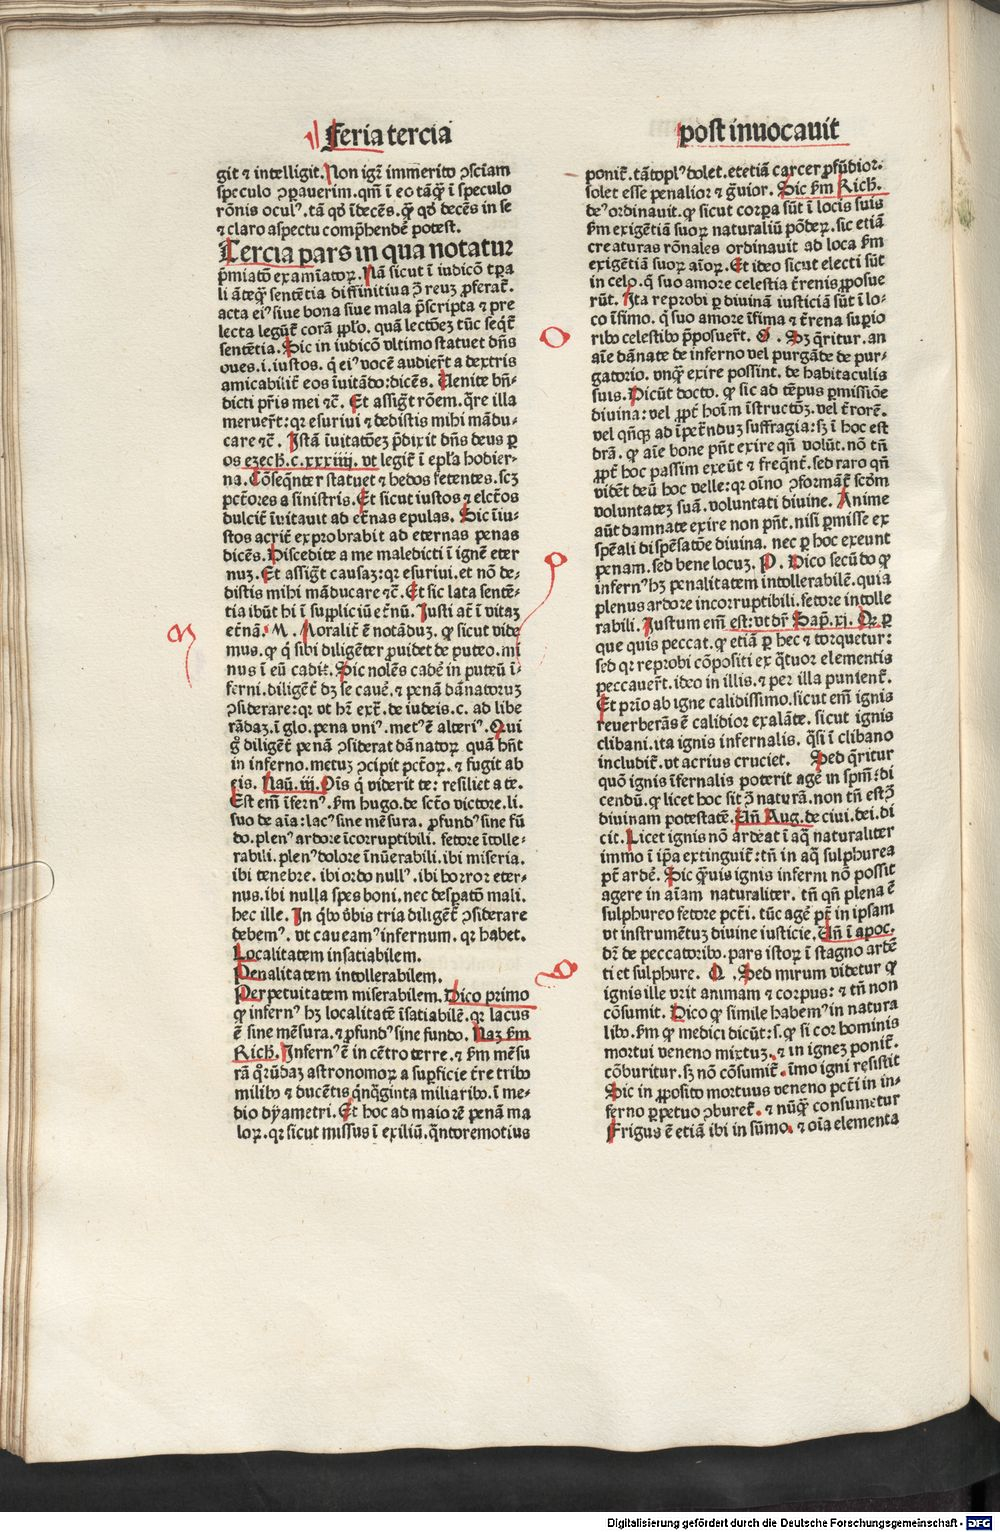 Feria tercia
post inuocauit
git ⁊ intelligit. Non igiť immerito ꝯsciam
speculo ꝯpauerim. qñ ī eo tāꝗ̃ ī speculo
rōnis oculꝰ. tā qð īdecēs. ꝗ̃ qð decēs in se
⁊ claro aspectu comp̄hendē potest.
Tercia pars in qua notatur
p̄miatō examīatoꝝ. Nā sicut ī iudicō tꝑa
li āteꝗ̃ sentētia diffinitiua ꝓ reuꝫ ꝓferat̄.
acta eiꝰ siue bona siue mala p̄scripta ⁊ pre
lecta legūt̄ corā ꝓplo. quā lectōeꝫ tūc seqt̄
sentētia. Sic in iudicō vltimo statuet dñs
oues .i. iustos. q̇ eiꝰ vocē audierūt a dextris
amicabilit̄ eos īuitādo: dicēs. Uenite bñ-
dicti pr̄is mei ⁊c̄. Et assigt̄ rōem. qre illa
meruer̄t: qꝛ esuriui ⁊ dedistis mihi mādu-
care ⁊c̄. Istā īuitatōeꝫ p̄dixit dñs deus ꝑ
os ezech. c. xxxiiij. vt legit̄ ī ep̄la hodier-
na. Cōseqn̄ter statuet ⁊ hedos fetentes. scꝫ
pct̄ores a sinistris. Et sicut iustos ⁊ elct̄os
dulcit̄ īuitauit ad et̄nas epulas. Sic īiu-
stos acrit̄ exprobrabit ad eternas penas
dicēs. Discedite a me maledicti ī ignē eter
nuꝫ. Et assigt̄ causaꝫ: qꝛ esuriui. et nō de-
distis mihi māducare ⁊c̄. Et sic lata sentē-
tia ibūt hi ī suppliciū et̄nū. Iusti at̄ ī vitaꝫ
et̄nā. M. Moralit̄ ē notāduꝫ. ꝙ sicut vide
mus. ꝙ q̇ sibi diligēter ꝓuidet de puteo. mi
nus ī eū cadit. Sic nolēs cadē in puteū ī-
ferni. diligēt̄ dꝫ se cauē. ⁊ penā dānatoruꝫ
ꝯsiderare: qꝛ vt hr̄ ext̄. de iudeis. c. ad libe
rādaꝫ. ī glo. pena vniꝰ. metꝰ ē alteriꝰ. Qui
g̊ diligēt̄ penā ꝯsiderat dānatoꝝ quā hñt
in inferno. metuꝫ ꝯcipit pct̄oꝝ. ⁊ fugit ab
eis. Naū. iij. Oīs q̇ viderit te: resiliet a te.
Est em̄ īfernꝰ. ẜm hugo. de sct̄o victore. li.
suo de aīa: lacꝰ sine mēsura. ꝓfundꝰ sine fū
do. plenꝰ ardore īcorruptibili. fetore ītolle-
rabili. plenꝰ dolore īnūerabili. ibi miseria.
ibi tenebre. ibi ordo nullꝰ. ibi horror eter-
nus. ibi nulla spes boni. nec despatō mali.
hec ille. In qbꝰ v̄bis tria diligēt̄ ꝯsiderare
debemꝰ. vt caueamꝰ infernum. qꝛ habet.
Localitatem insatiabilem.
Penalitatem intollerabilem.
Perpetuitatem miserabilem. Dico primo
ꝙ infernꝰ hꝫ localitatē īsatiabilē. qꝛ lacus
ē sine mēsura. ⁊ ꝓfundꝰ sine fundo. Naꝫ ẜm
Rich. Infernꝰ ē in cētro terre. ⁊ ẜm mēsu
rā qrūdaꝫ astronomoꝝ a suꝑficie tr̄e tribꝰ
milibꝰ ⁊ ducētis qn̄q̄ginta miliaribꝰ. ī me-
dio dyametri. Et hoc ad maiorē penā ma
loꝝ. qꝛ sicut missus ī exiliū. qn̄toremotius
ponit̄. tātoplꝰ dolet. etetiā carcer ꝓfūdior.
solet esse penalior ⁊ g̃uior. Sic ẜm Rich.
deꝰ ordinauit. ꝙ sicut corꝑa sūt ī locis suis
ẜm exigētiā suoꝝ naturaliū pōdeꝝ. sic etiā
creaturas rōnales ordinauit ad loca ẜm
exigētiā suoꝝ aīoꝝ. Et ideo sicut electi sūt
in celo. q̇ suo amore celestia t̄renis ꝓposue
rūt. Ita reprobi ꝑ diuinā iusticiā sūt ī lo-
co īfimo. q̇ suo amore īfima ⁊ t̄rena suꝑio
ribꝰ celestibꝰ p̄posuer̄t. O. Sꝫ qritur. an
aīe dānate de inferno vel purgāde de pur-
gatorio. vnq̄ꝫ exire possint. de habitaculis
suis. Dicūt docto. ꝙ sic ad tēpus ꝑmissiōe
diuina: vel ꝓpt̄ hoīm īstructōꝫ. vel t̄rorē.
vel qn̄qꝫ ad īpet̄nduꝫ suffragia: sꝫ ī hoc est
dr̄a. ꝙ aīe bone pn̄t exire qn̄ volūt. nō tn̄
ꝓpt̄ hoc passim exeūt ⁊ freqn̄t. sed raro qn̄
vidēt deū hoc velle: qꝛ oīno ꝯformāt̄ sc̄dm
voluntateꝫ suā. voluntati diuine. Anime
aūt damnate exire non pn̄t. nisi ꝑmisse ex
spēali dispēsatōe diuina. nec ꝑ hoc exeunt
penam. sed bene locuꝫ. P. Dico secūdo ꝙ
infernꝰ hꝫ penalitatem intollerabilē. quia
plenus ardore incorruptibili. fetore intolle
rabili. Iustum em̄ est: vt dr̄ Sap̄. xj. Qꝛ ꝑ
que quis peccat. ꝙ etiā ꝑ hec ⁊ torquetur:
sed qꝛ reprobi cōpositi ex qtuor elementis
peccauer̄t. ideo in illis. ⁊ per illa punient̄.
Et prīo ab igne calidissimo. sicut em̄ ignis
reuerberās ē calidior exalāte. sicut ignis
clibani. ita ignis infernalis. qsi ī clibano
includit̄. vt acrius cruciet. Sed qritur
quō ignis īfernalis poterit agē in spm̄: di
cendū. ꝙ licet hoc sit ꝯ̄ naturā. non tn̄ est ꝯ̄
diuinam potestatē. Uñ Aug. de ciui. dei. di
cit. Licet ignis nō ardeat ī aq̄ naturaliter
immo ī ip̄a extinguit̄: tn̄ in aq̄ sulphurea
pt̄ ardē. Sic q̄uis ignis inferni nō possit
agere in aīam naturaliter. tn̄ qn̄ plena ē
sulphureo fetore pct̄i. tūc agē pt̄ in ipsam
vt instrumētuꝫ diuine iusticie. Uñ ī apoc.
dr̄ de peccatoribꝰ. pars istoꝝ ī stagno ardē
ti et sulphure. Q. Sed mirum videtur ꝙ
ignis ille vrit animam ⁊ corpus: ⁊ tn̄ non
cōsumit. Dico ꝙ simile habemꝰ in natura
libꝰ. ẜm ꝙ medici dicūt: s. ꝙ si cor hominis
mortui veneno mixtuꝫ. ⁊ in igneꝫ ponit̄.
cōburitur. sꝫ nō cōsumit̄. īmo igni resistit
Sic in ꝓposito mortuus veneno pct̄i in in-
ferno ꝑpetuo ꝯburet̄. ⁊ nūq̄ consumetur
Frigus ē etiā ibi in sūmo. ⁊ oīa elementa
Digitalisierung gefördert durch die Deutsche Forschungsgemeinschaft - DFG